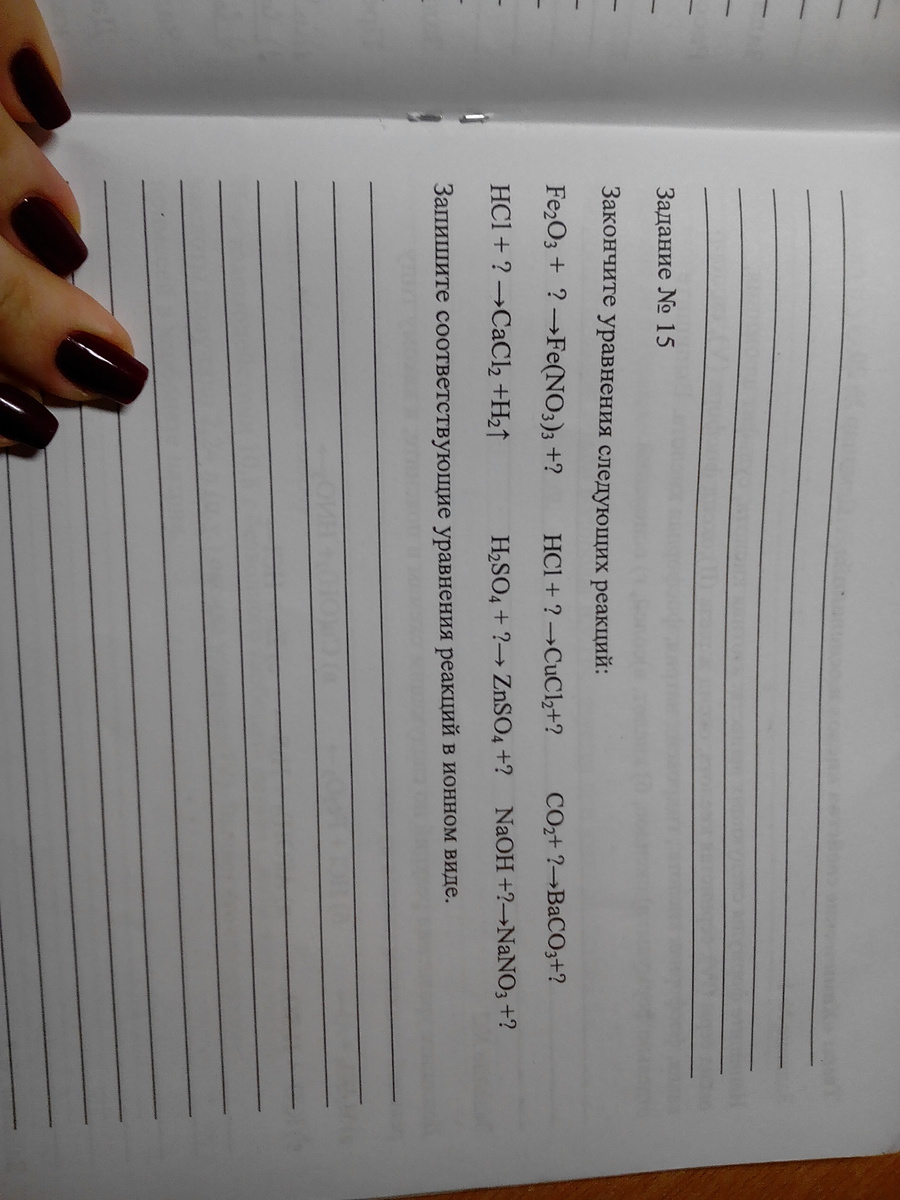 Задание № 15
Закончите уравнения следующих реакций:
Fe₂O₃ + ? →Fe(NO₃)₃ +? HCl + ? →CuCl₂+? CO₂+ ?→BaCO₃+?
HCl + ? →CaCl₂ +H₂↑ H₂SO₄ + ?→ ZnSO₄ +? NaOH +?→NaNO₃ +?
Запишите соответствующие уравнения реакций в ионном виде.